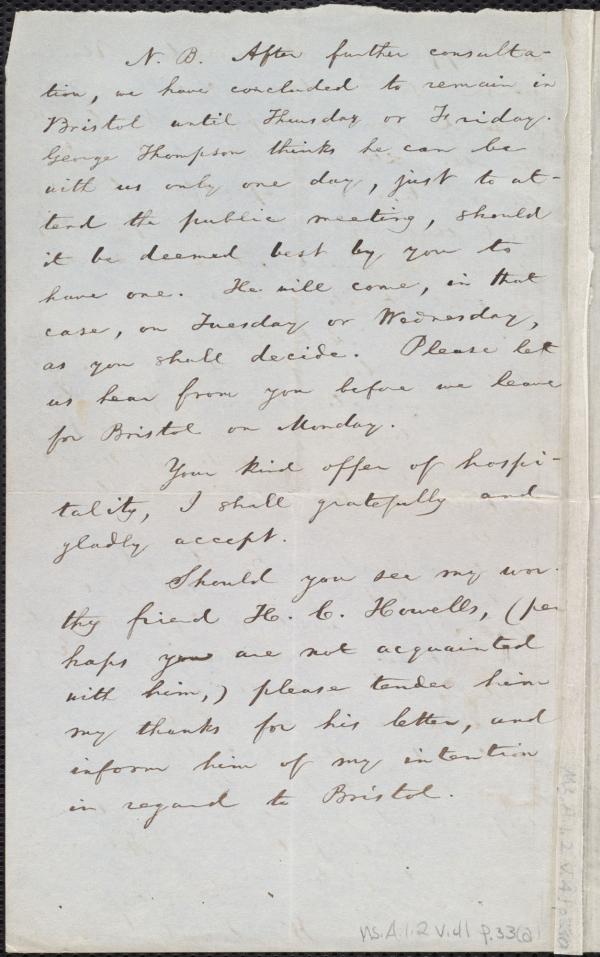 N. B. After further consulta-
tion, we have concluded to remain in
Bristol until Thursday or Friday.
George Thompson thinks he can be
with us only one day, just to at-
tend the public meeting, should
it be deemed best by you to
have one. He will come, in that
case, on Tuesday or Wednesday,
as you shall decide. Please let
us hear from you before we leave
for Bristol on Monday.
Your kind offer of hospi-
tality, I shall gratefully and
gladly accept.
Should you see my wor-
thy friend H. C. Howells, (per
haps you are not acquainted
with him,) please tender him
my thanks for his letter, and
inform him of my intention
in regard to Bristol.
Ms. A. 1. 2 V. 41 p. 33(a)